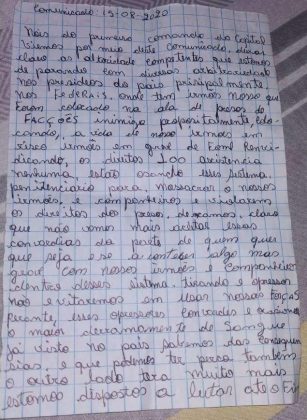 Comunicado 19-08-2020
Nois do primeiro comando do Capital
Viemos por meio deste comunicado, deixar
claro as altoridade competentes que estamos
de parados com diversas arbitrariedade
nos presidios do pais prisipalmente
nos Federais, onde tem irmos nosso que
foram colocado na ala de presos de
FACÇÕES inimiga propositalmente, colo-
cando, a vida de nosso irmos em
risco irmões em greve de Fome Reinvi-
dicando, os direitos 100 asistencia
nenhuma, estão usando esse sistema
penitenciario para, massacrar o nossos
irmões, e companheiros e violarem
os direitos dos preso, deixamos, claro
que não vamos mais aceitar essas
covardias da parte de quem quer
que seja e se acontecer algo mas
grave com nossos irmões e companheiro
dentro desses sistema. tirando e opressor
não evitaremos em usar nossas forças
Perante, esses opressores covardes e
o maior derramamento de Sangue
já visto no pais sabemos das consequen
sias e que podemos ter perca também
o outro lado tera muito mais
estamos dispostos a lutar ate o Fim